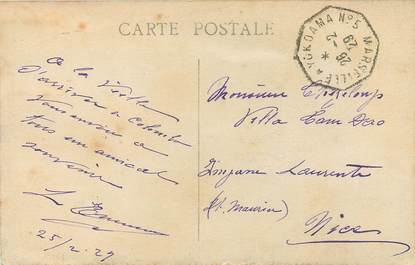 CARTE POSTALE
MARSEILLE A YOKOAMA N°5
26 - 2
29
A la Veille
d'arriver a Colombo
Vous envoie a
tous un amical
souvenir
25/2-29
Monsieur
Villa
Impasse Laurenti
(St. Maurice)
Nice